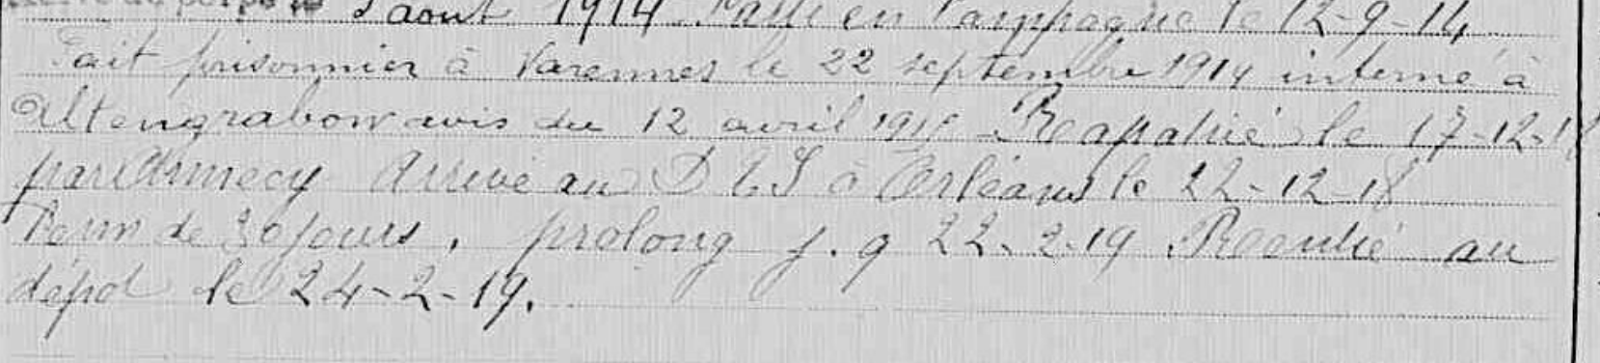 août 1914 Passé en Campagne le 12-9-14
Fait prisonnier à Varennes le 22 septembre 1914 interné à
Altengrabow avis du 12 avril Reapatrié le 17-12-18
par Annecy Arrivé au à Orléans le 22-12-18
Perm de 30 jours, prolong j. q 22-2-19 Rentré au
dépot le 24-2-19.